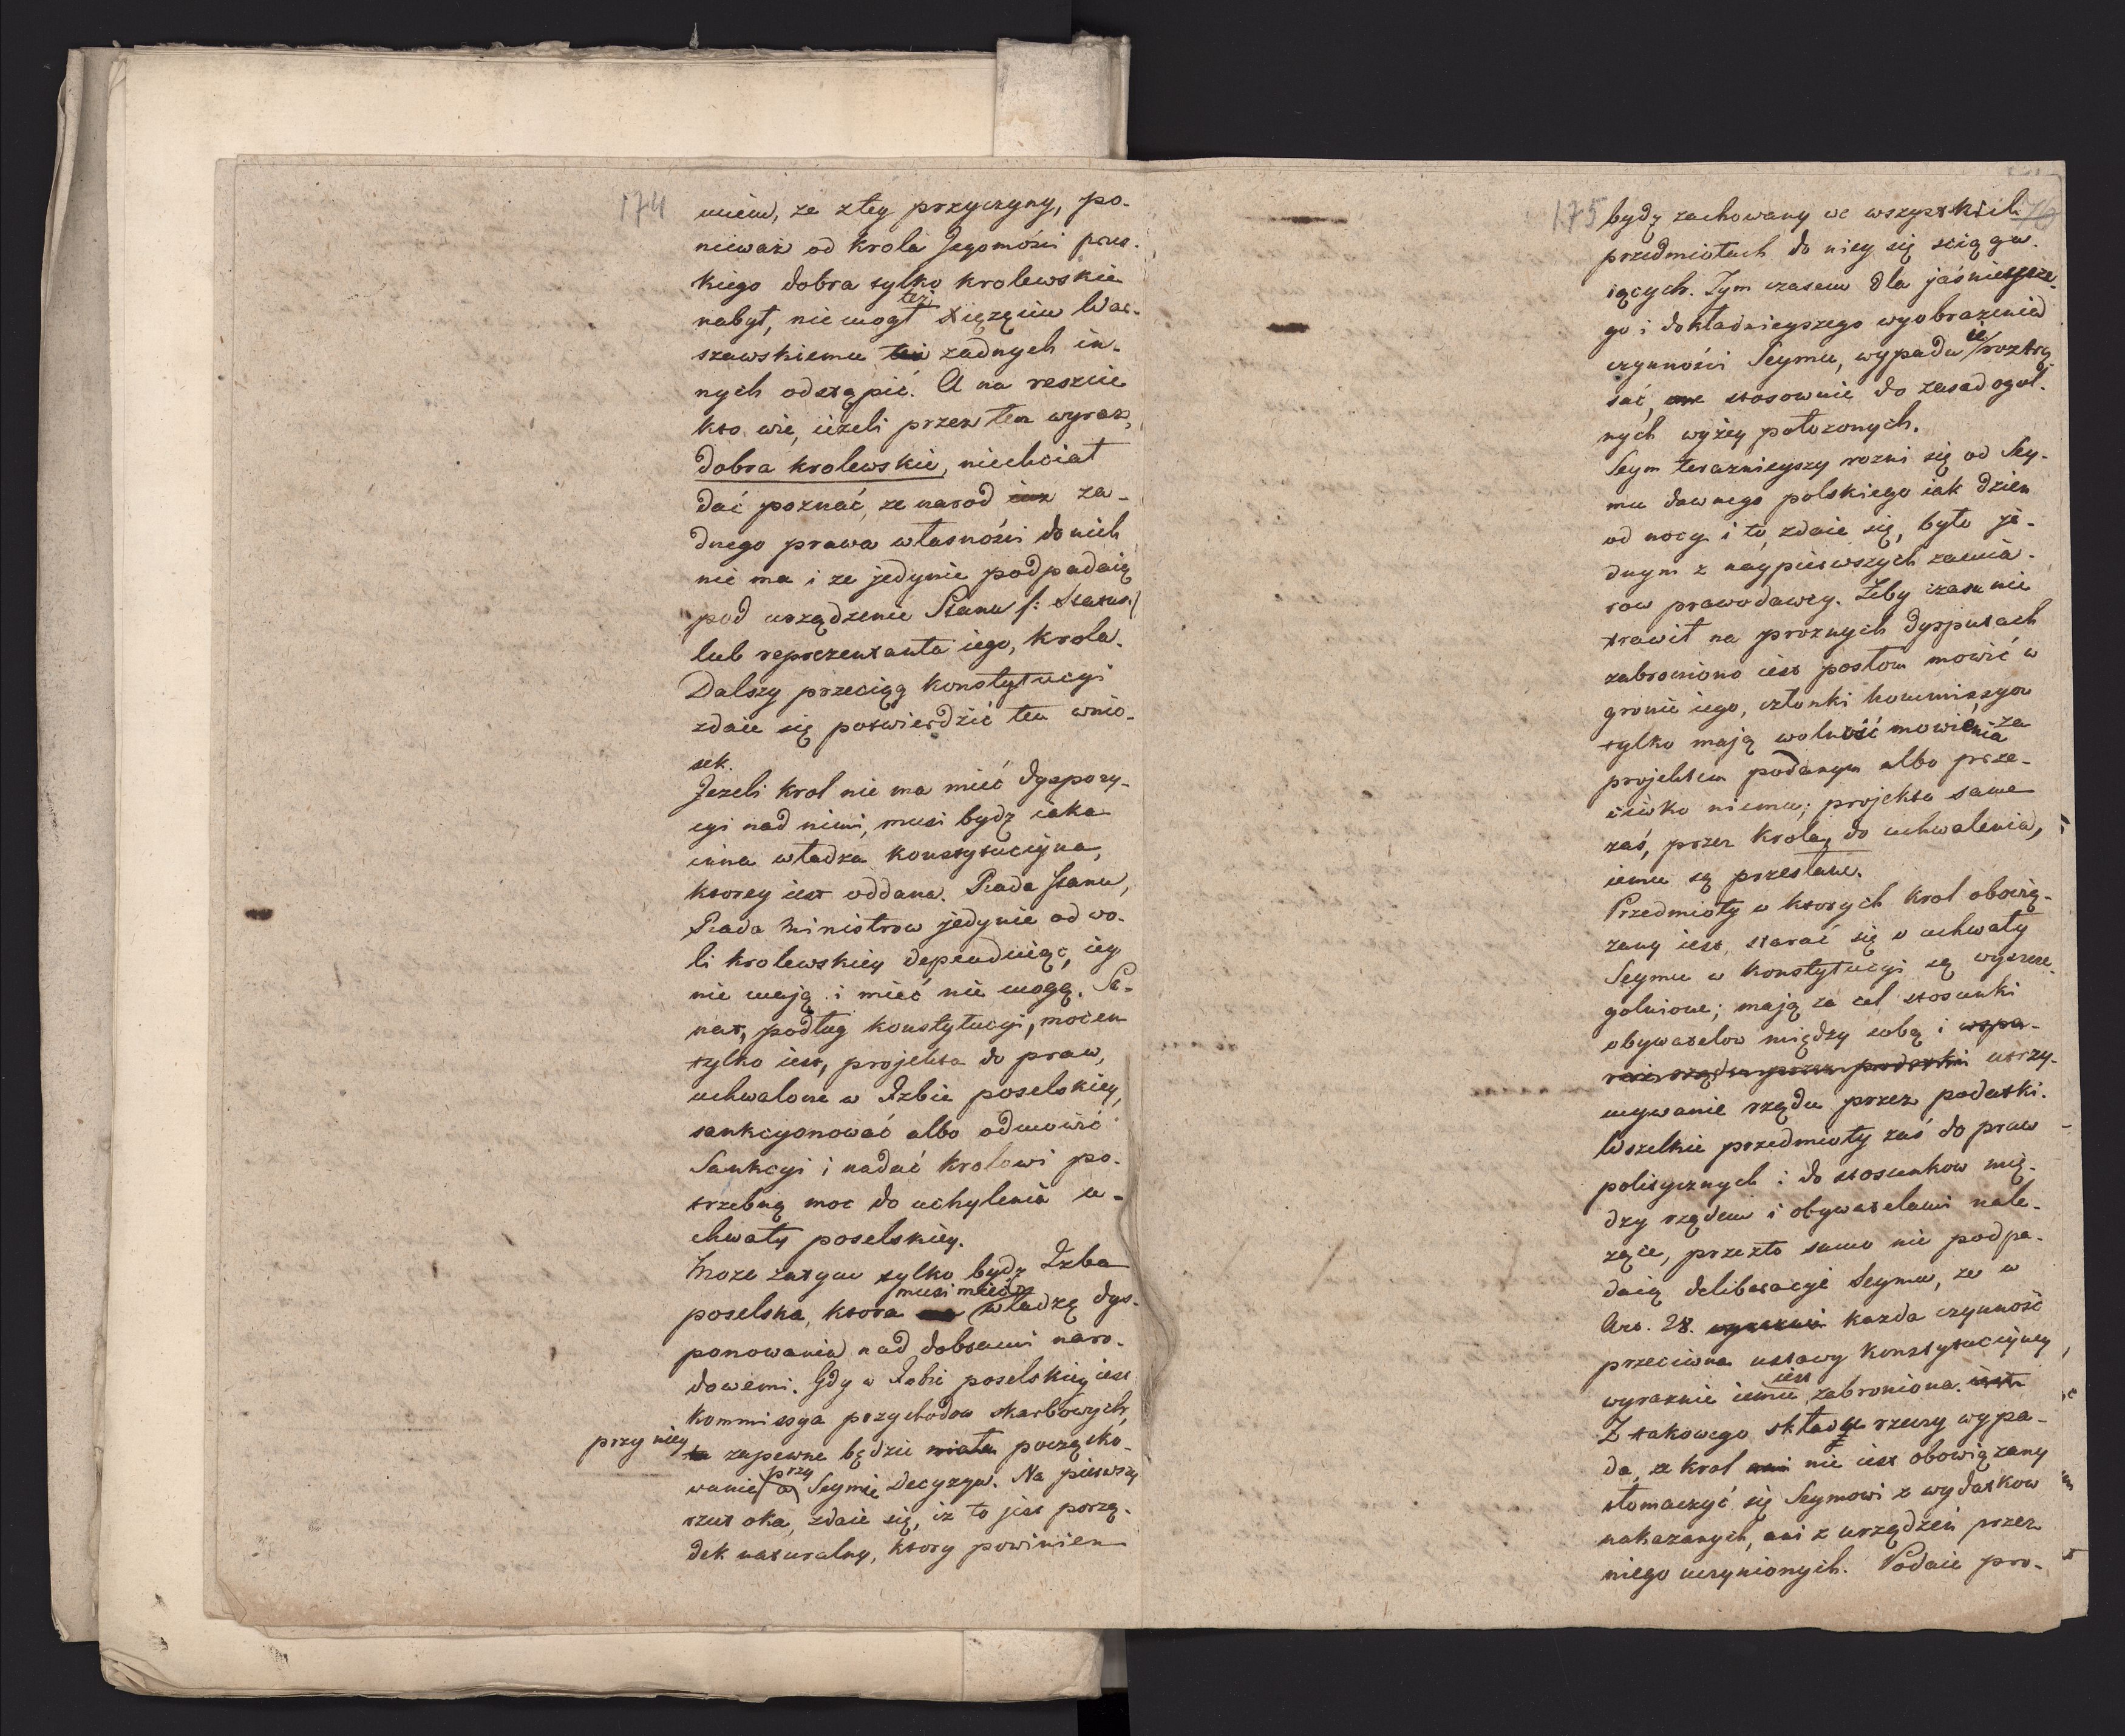 174
mieiu, że z tey przyczyny, po-
nieważ od krola Jegomości prus-
kiego dobra tylko krolewskie
tez
nabył, nie mogł xięzęciu War-
szawskiemu tez zadnych in-
nych odstąpić. A na reszcie
kto wie, ieżeli przez ten wyraz,
dobra krolewskie, niechciał
dać poznać, ze narod iuz za-
dnego prawa własności do nich
nie ma i ze jedynie podpadaią
pod urządzenie Stanu /: Status:/
lub reprezentanta iego, krola.
Dalszy przeciąg konstytucyi
zdaie się potwierdzić ten wnio-
sek.
Jezeli krol nie ma mieć dyspozy-
cyi nad niemi, musi bydź iaka
inna władza konstytucyina,
ktorey iest oddana. Rada stanu,
Rada Ministrow jedynie od wo-
li krolewskiey dependuiąc, iey
nie mają i mieć nie mogą. Se-
nat, podług konstytucyi, mocen
tylko iest, projekta do praw,
uchwalone w Izbie poselskiey,
sankcyonować albo odmowić
Sankcyi i nadać krolowi po-
trzebną moc do uchylenia u-
chwały poselskiey.
Moze zatym tylko bydź Izba
musi mieć
poselska, ktora ma władzę dys-
ponowania nad dobrami naro-
dowemi. Gdy w Izbie poselskiey iest
kommissya przychodow skarbowych,
przy niey ta zapewne będzie miała początko-
przy
wanie, a Seymie decyzya. Na pierwszy
rzut oka, zdaie się, iz to jest porzą-
dek naturalny, ktory powinien
175
176
bydź zachowany we wszystkich
przedmiotach do niey się ściąga-
iących. Tym czasem dla jaśnieysze-
go i dokładnieyszego wyobrazenia
ie
czynności Seymu, wypada roztrzą-
sać, one stosownie do zasad ogol-
nych wyżey położonych.
Seym teraznieyszy rozni się od Sey-
mu dawnego polskiego iak dzien
od nocy i to, zdaie się, było je-
dnym z naypierwszych zamia-
row prawodawcy. Żeby czasu nie
trawił na proznych dysputach
zabroniono iest posłom mowić w
gronie iego, członki kommissyow
tylko mają wolność mowienia za
projektem podanym albo prze-
ciwko niemu; projekta same
zaś, przez krola, do uchwalenia,
iemu są przesłane.
Przedmioty w ktorych krol obowią-
zany iest, starać się o uchwały
Seymu w konstytucyi są wyszcze-
golnione; mają za cel stosunki
obywatelow między sobą i wspa-
rcie rządu przez podatki utrzy-
mywanie rządu przez podatki.
Wszelkie przedmioty zaś do praw
politycznych i do stosunkow mię-
dzy rządem i obywatelami nale-
zące, przezto samo nie podpa-
daią deliberacyi Seymu, ze w
Art. 28. wyraznie kazda czynność
przeciwna ustawy konstytucyiney
iest
wyraznie iemu zabroniona. iest.
Z takowego składu rzeczy wypa-
da, ze krol ani nie iest obowiązany
tłomaczyć się Seymowi z wydatkow
nakazanych, ani z urządzeń przez
niego uczynionych. Podaie pro-